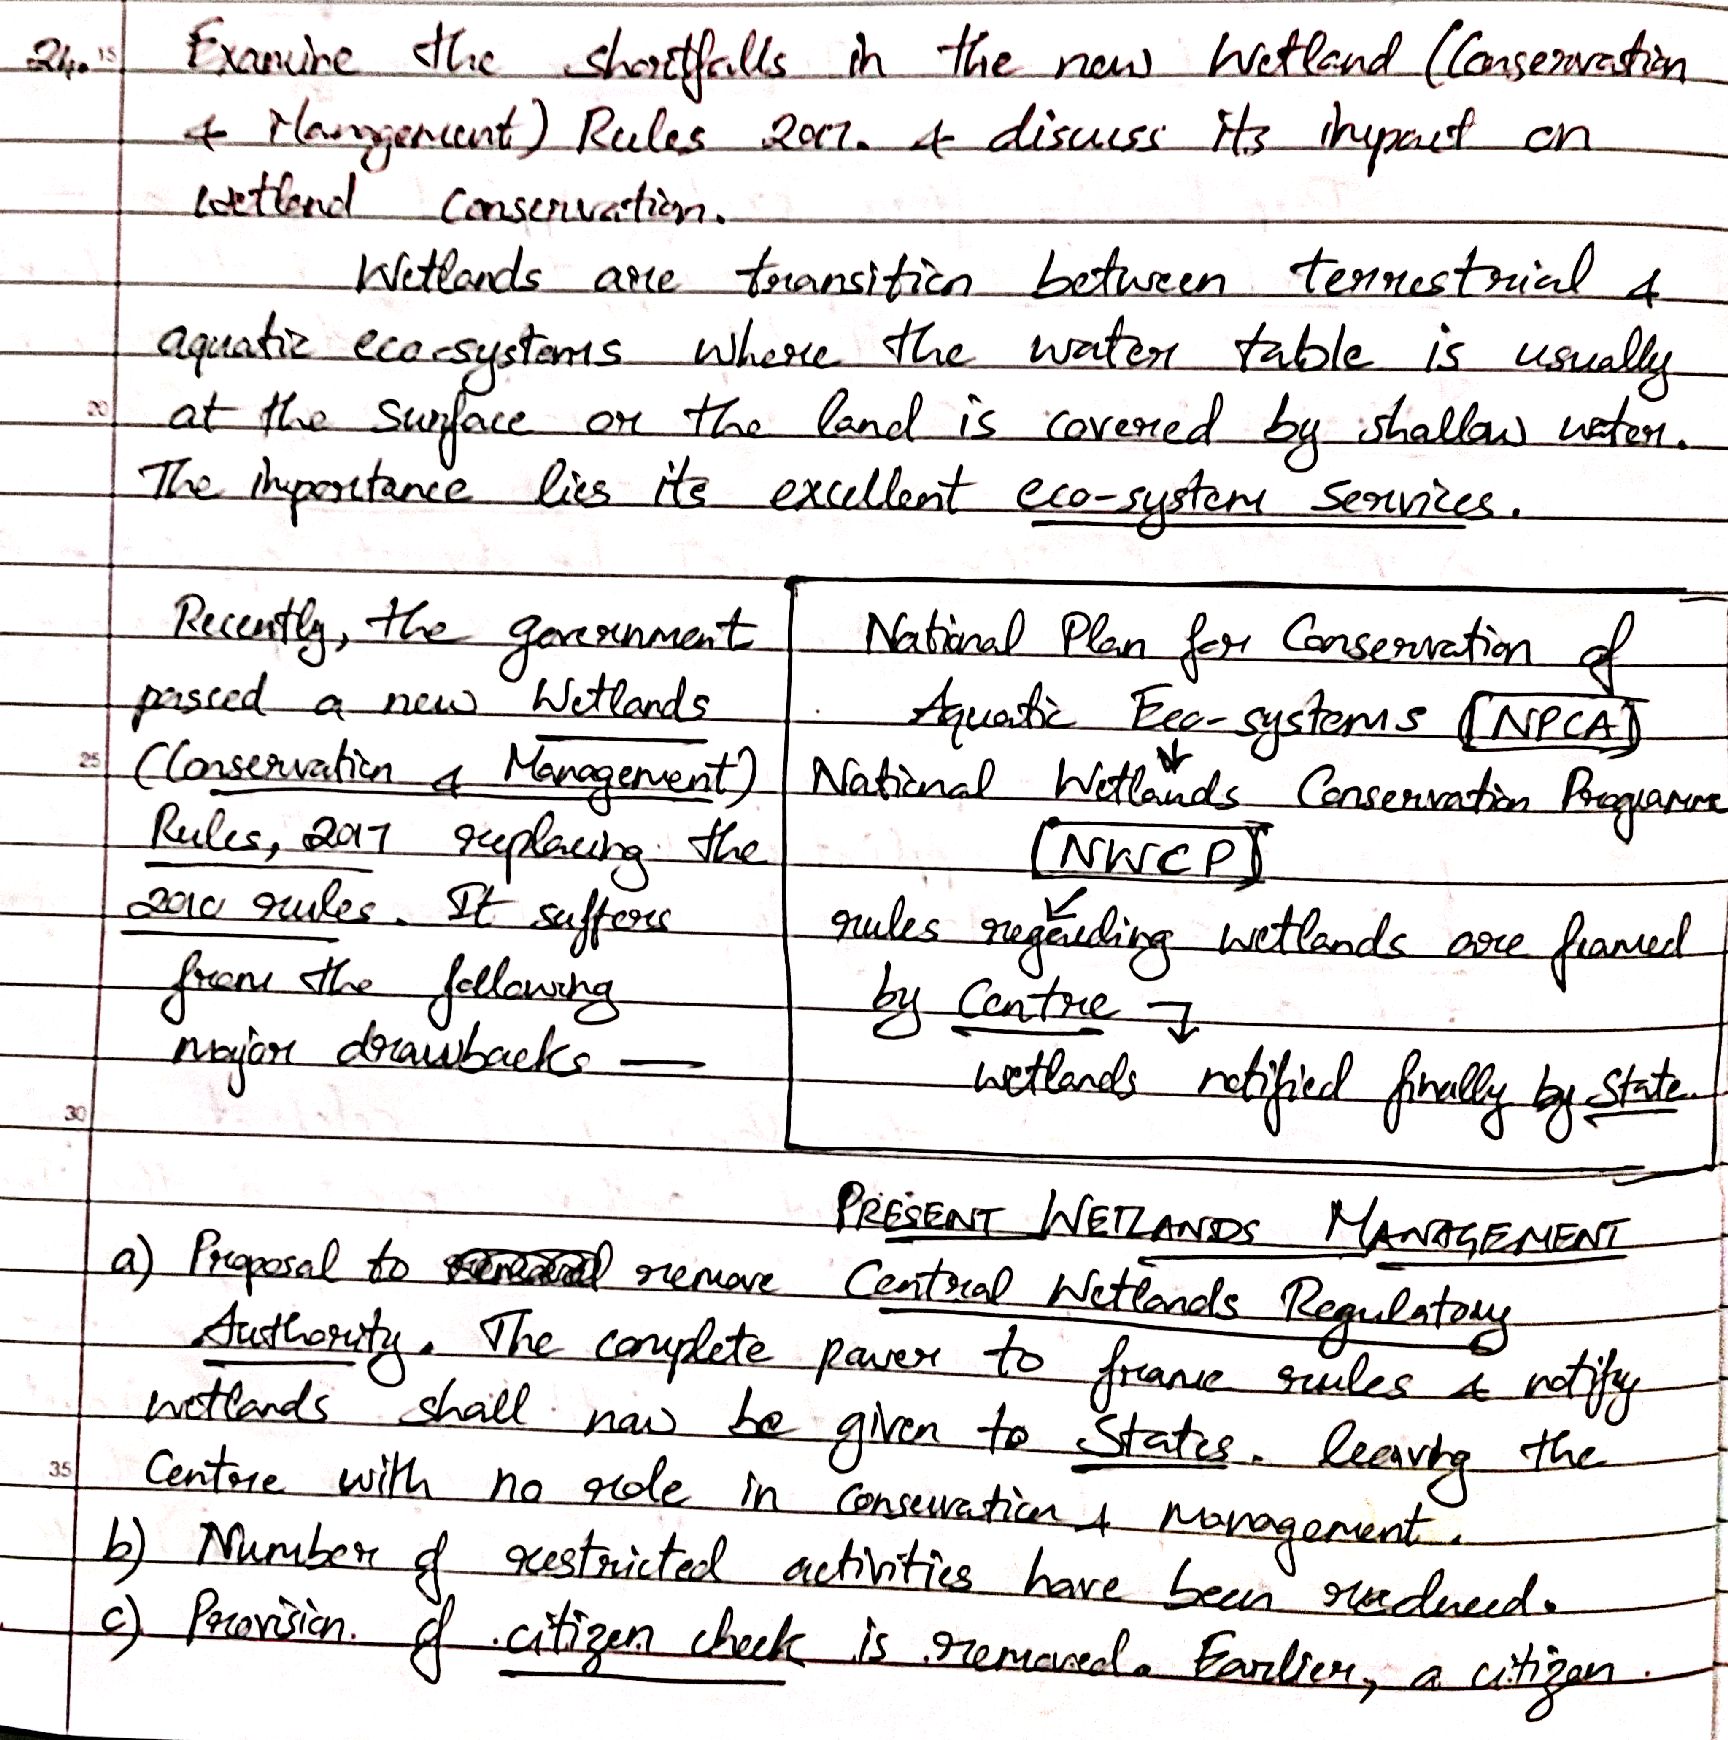 24. 15 Examine the shortfalls in the new Wetland (Conservation
& Management) Rules 2017. & discuss its impact on
wetland conservation.
Wetlands are transition between terrestrial &
aquatic eco-systems where the water table is usually
20 at the surface or the land is covered by shallow water.
The importance lies its excellent eco-system services.
Recently, the government
passed a new Wetlands
25 (Conservation & Management)
Rules, 2017 replacing the
2010 rules. It suffers
from the following
major drawbacks —
30
National Plan for Conservation of
Aquatic Eco-systems [NPCA]
National Wetlands Conservation Programme
[NWCP]
rules regarding wetlands are framed
by Centre →
wetlands notified finally by State.
PRESENT WETLANDS MANAGEMENT
a) Proposal to remove Central Wetlands Regulatory
Authority. The complete power to frame rules & notify
wetlands shall now be given to States. leaving the
35 Centre with no role in conservation & management.
b) Number of restricted activities have been reduced.
c) Provision of citizen check is removed. Earlier, a citizen